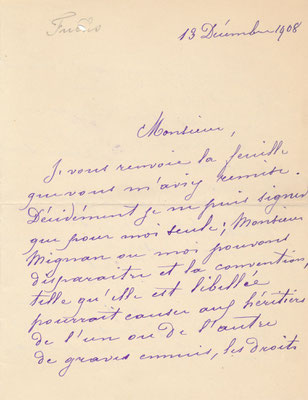 13 Décembre 1908
Monsieur,
Je vous renvoie la feuille
que vous m'aviez remise.
Décidément je ne puis signer
que pour moi seule; Monsieur
Mignan ou moi pouvons
disparaître et la convention,
telle qu'elle est libellée
pourrait causer aux héritiers
de l'un ou de l'autre
de graves ennuis, les droits